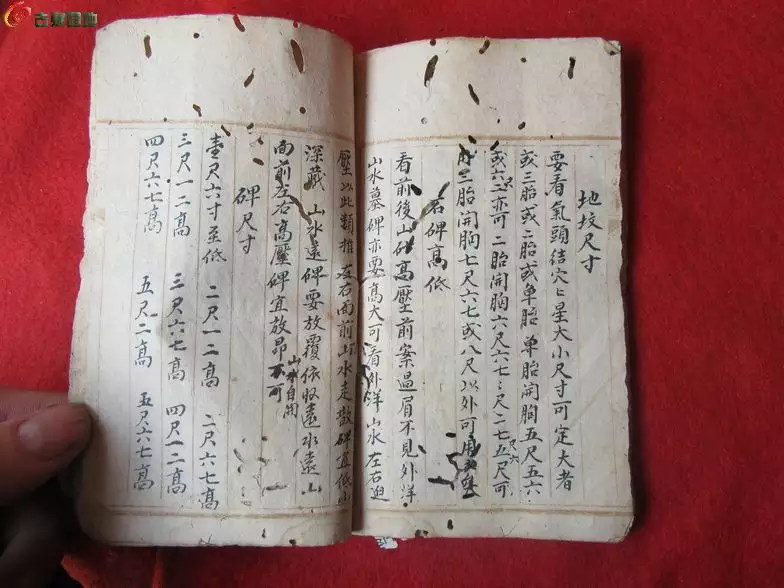 地坟尺寸
要看氣頭結穴匕星大小尺寸可定大者
或三胎或二胎或单胎单胎開胸五尺五六
或六二尺亦可二胎開胸六尺六七〻尺二七五尺可
尺六
用三胎開胸七尺六七或八尺以外可用
名碑高低
看前後山砂高壓前案過眉不見外洋
山水墓碑亦要高大可看外洋山水左右迫
壓以此類推左右面前山水走散碑宜低山
深藏山水遠碑要放覆依収遠水遠山
面前左右高壓碑宜放昂不可
山水自開
碑尺寸
壹尺六寸至低 二尺一二高 二尺六七高
三尺一二高 三尺六七高 四尺一二高
四尺六七高 五尺二高 五尺六七高